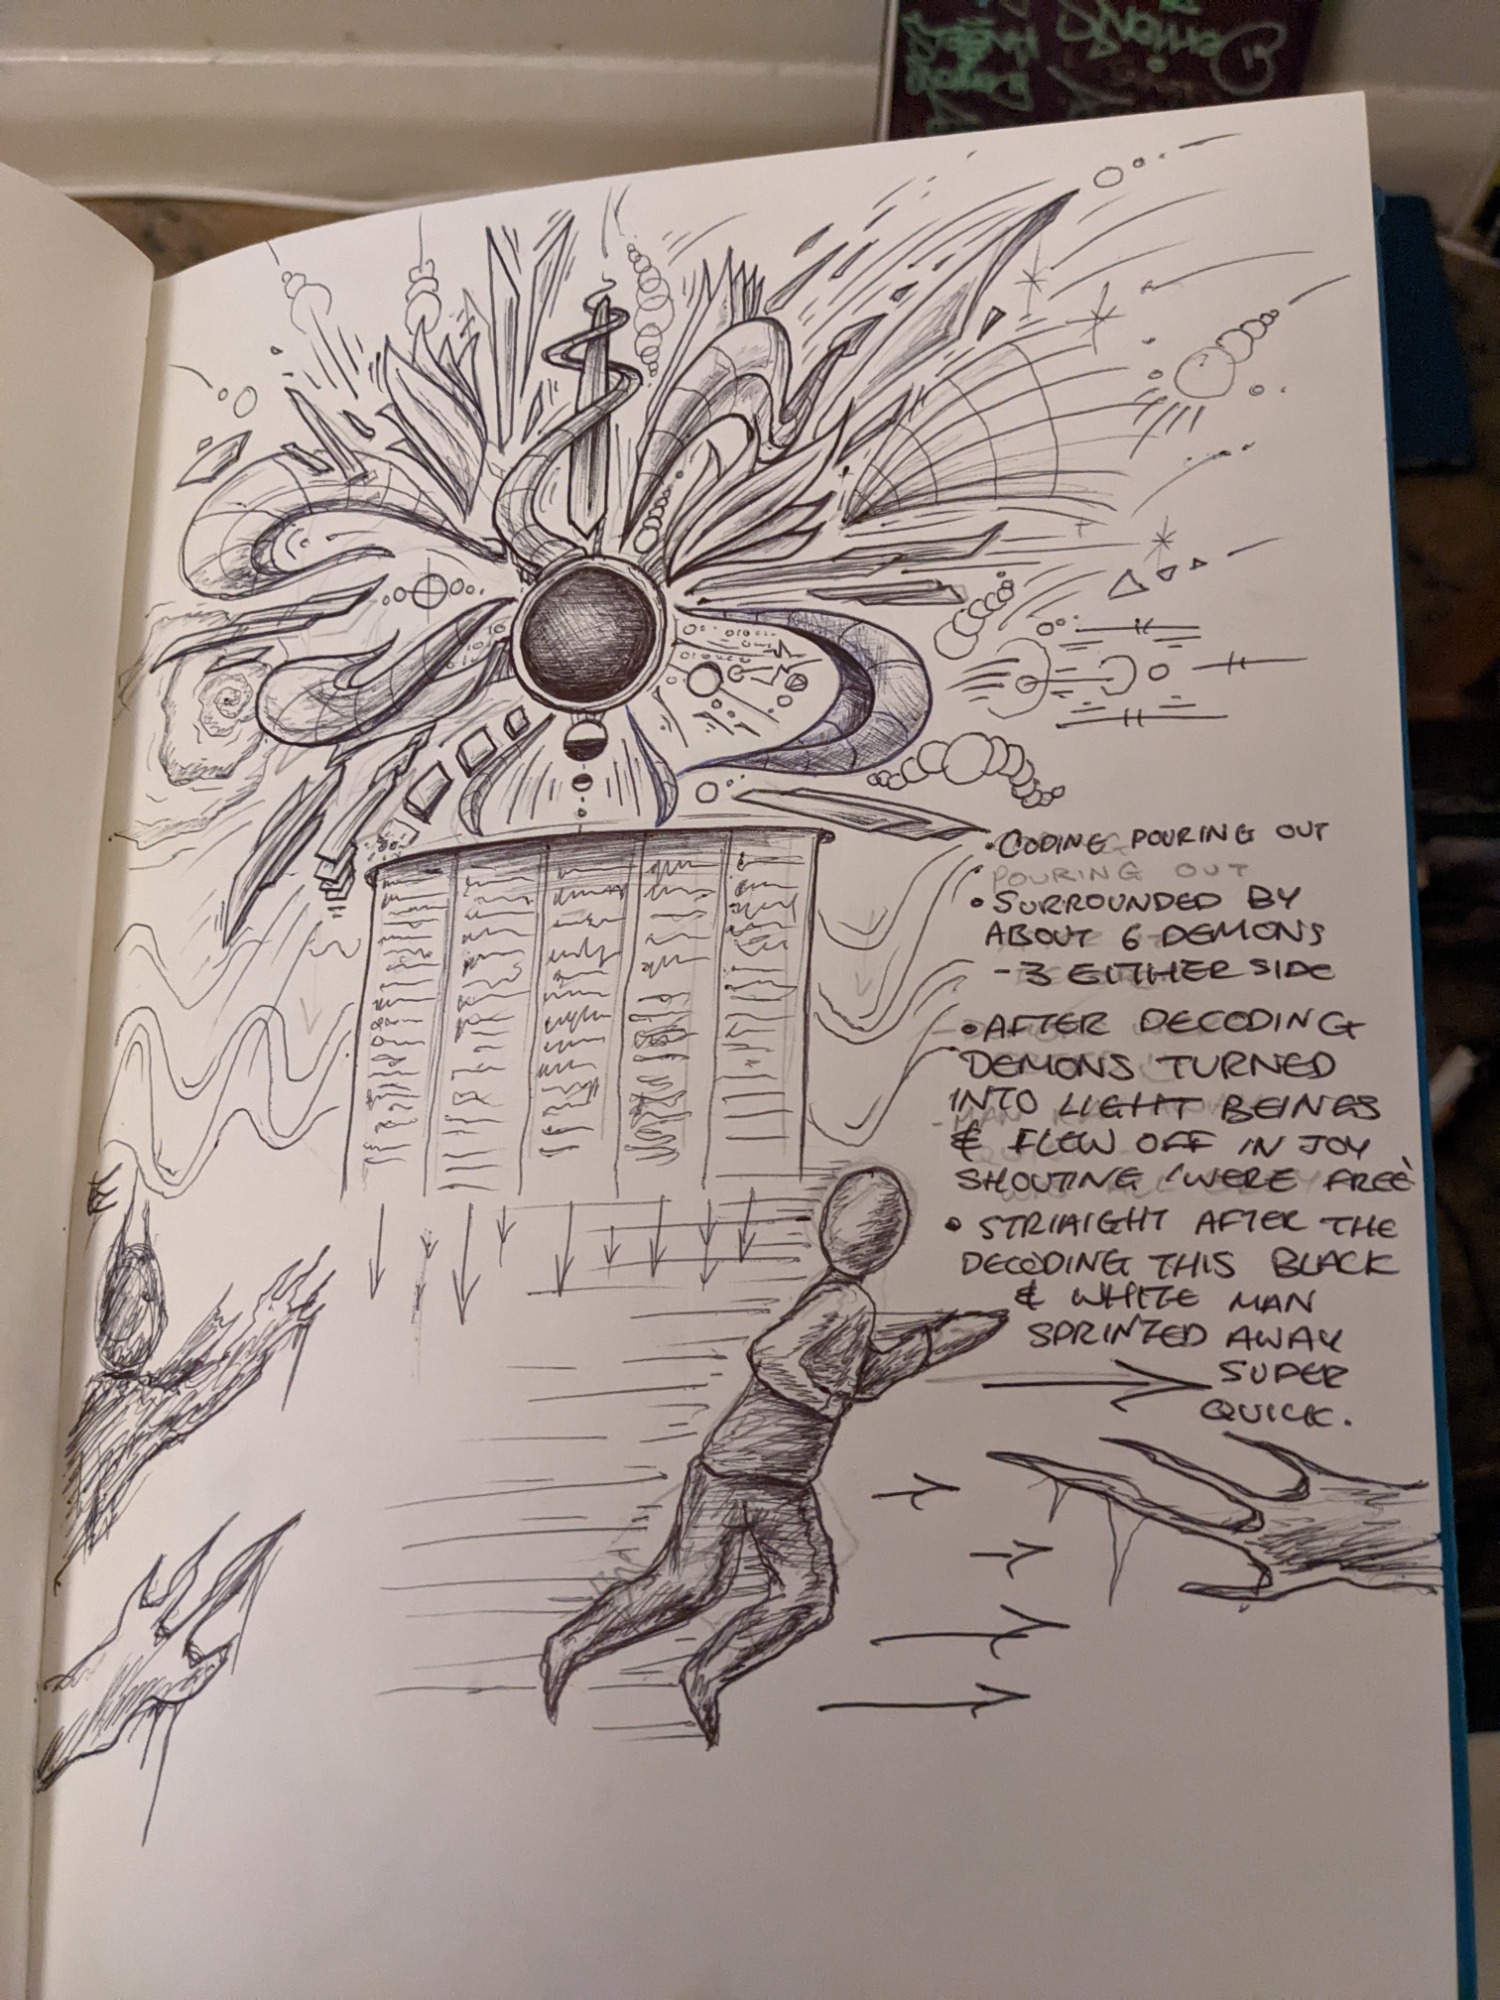 •CODING POURING OUT
POURING OUT
•SURROUNDED BY
ABOUT 6 DEMONS
-3 EITHER SIDE
•AFTER DECODING
DEMONS TURNED
INTO LIGHT BEINGS
& FLEW OFF IN JOY
SHOUTING 'WERE FREE'
• STRIAIGHT AFTER THE
DECODING THIS BLACK
& WHITE MAN
SPRINTED AWAY
SUPER
QUICK.